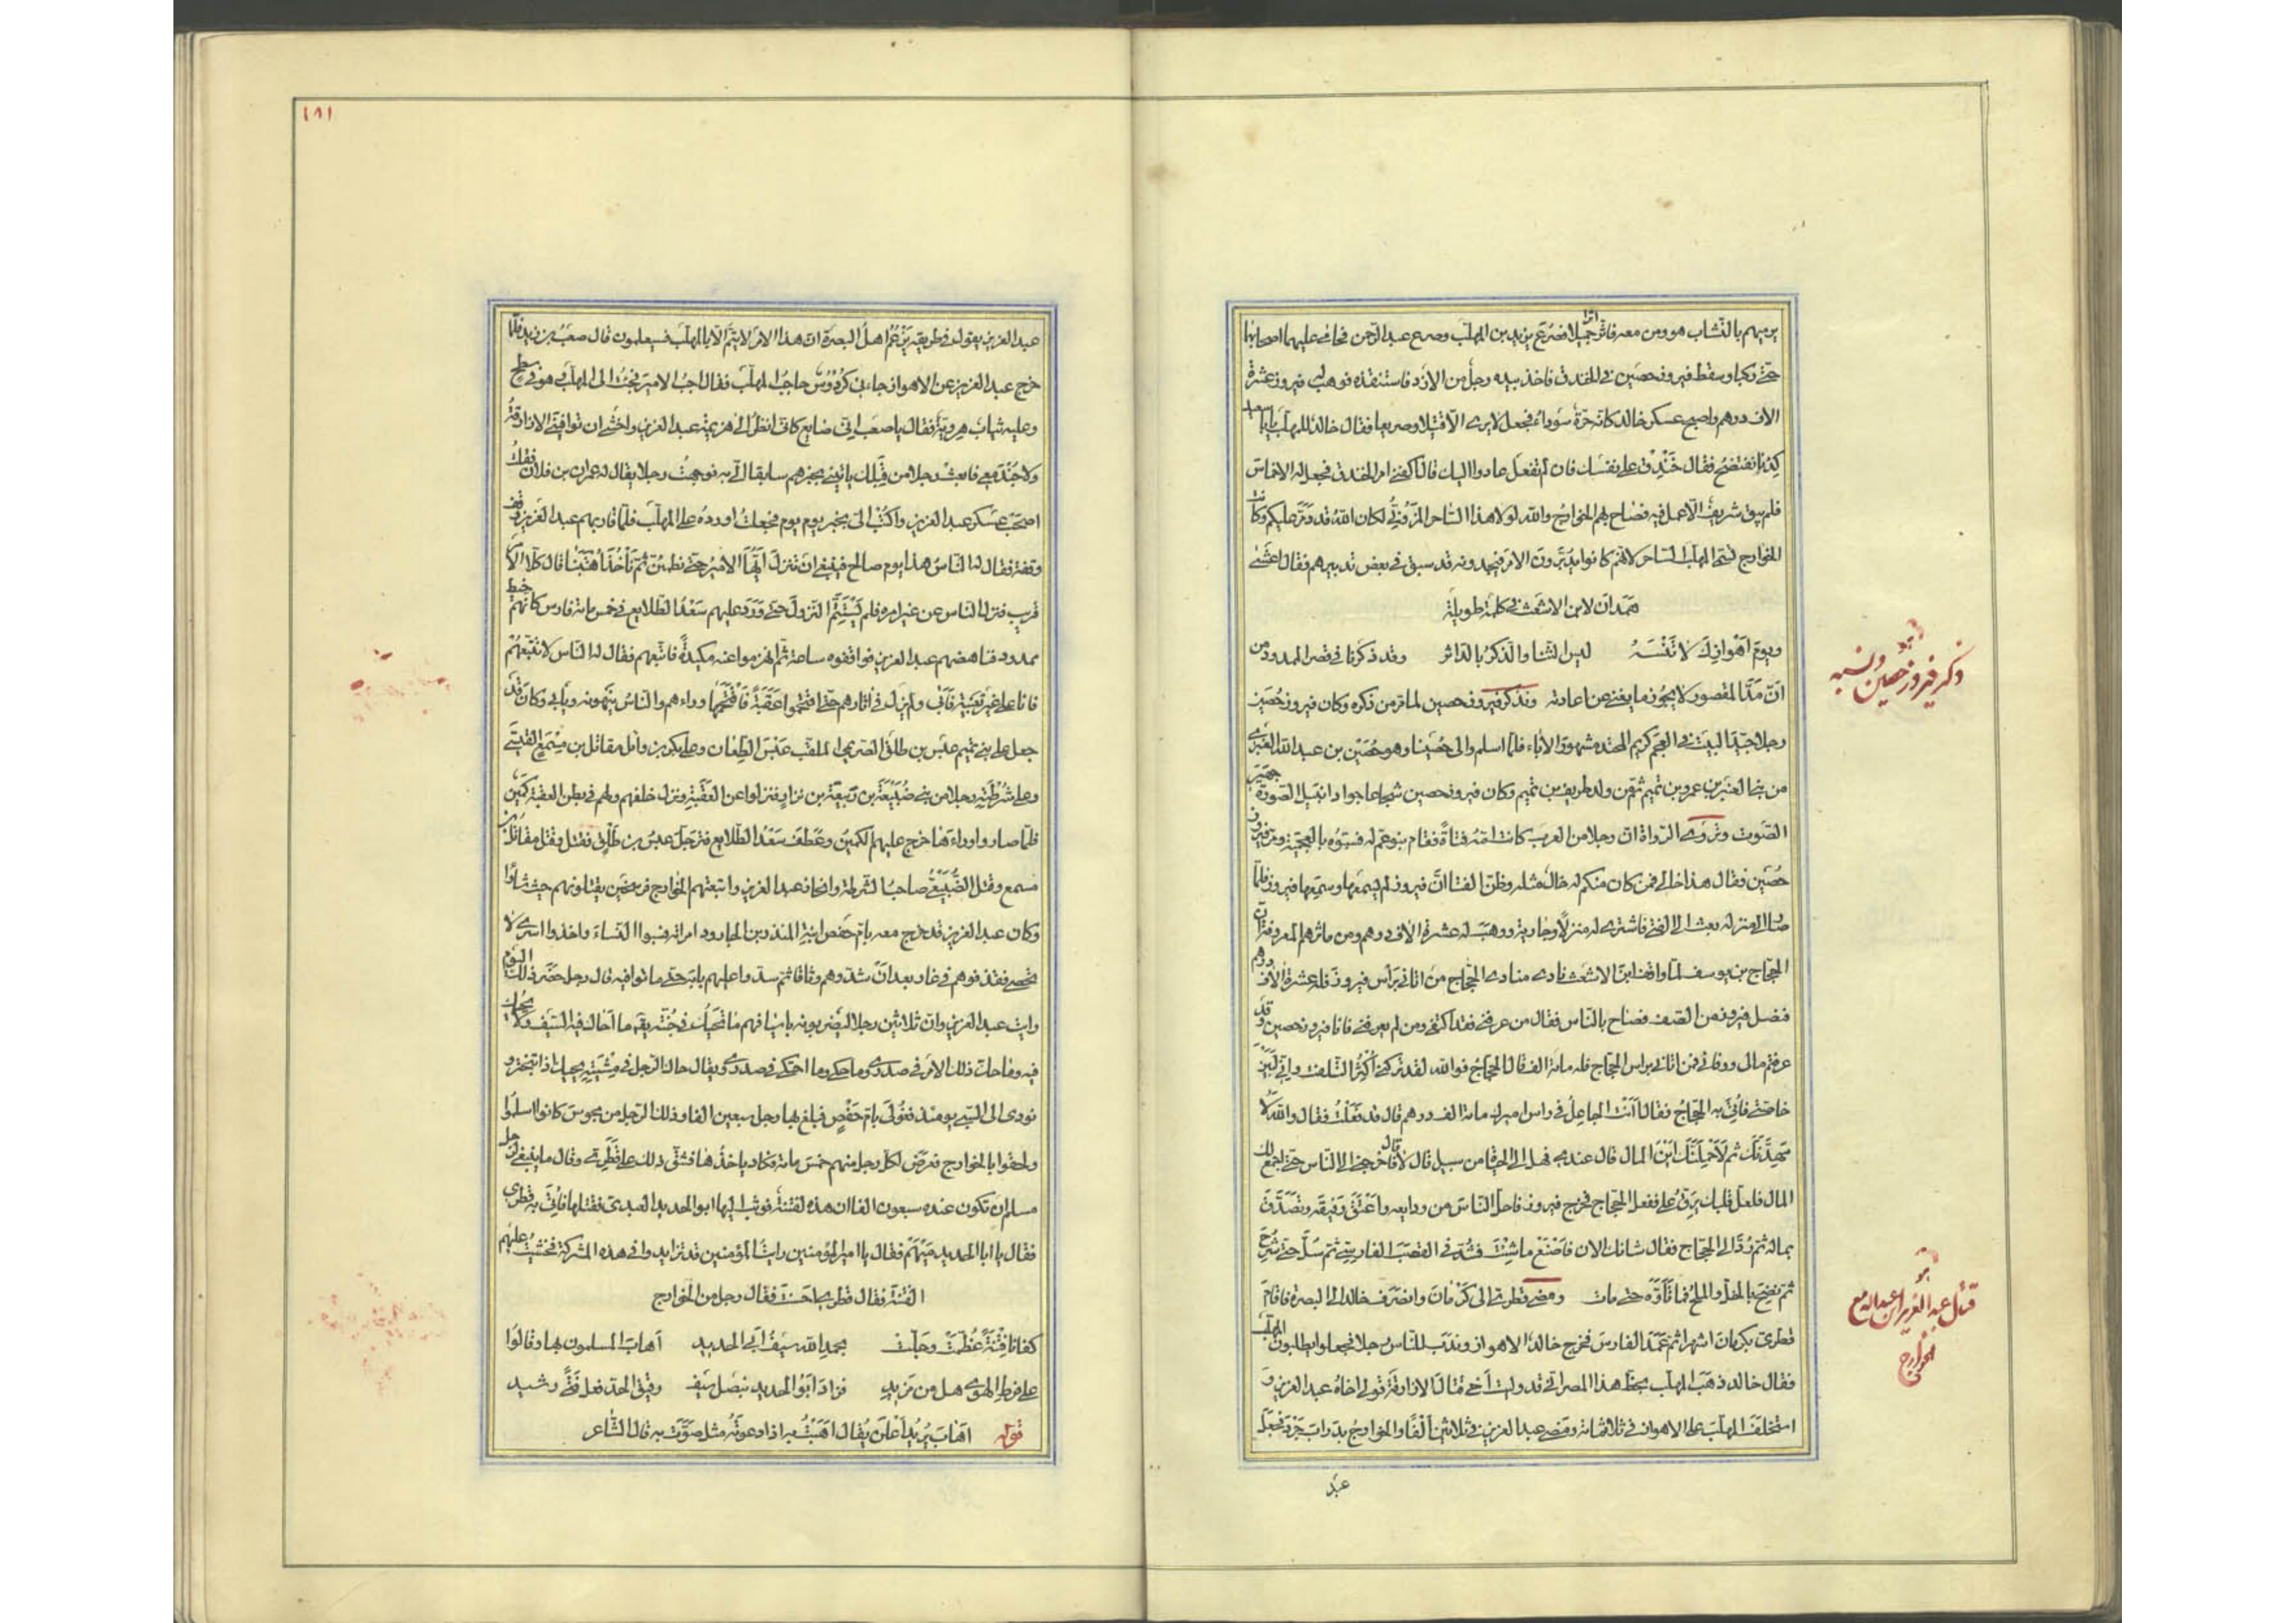 يرميهم بالنشّاب هو ومن معه فاثّر اثرا جميلا فصرع يزيد بن المهلّب وصرع عبد الرحمن فحامى عليهما اصحابهما
حتّى ركبا وسقط فيروز حصين فى الخندق فاخذ بيده رجل من الازد فاستنقذه فوهب له فيروز عشرة
الاف درهم واصبح عسكر خالد كانّه حرّة سوداء فجعل لا يرى الّا قتيلا وصريعا فقال خالد للمهلّب يابا سعيد
كدنا نفتضح فقال خندق على نفسك فان لم تفعل عادوا اليك قال اكفنى امر الخندق فجعل له الاخماس
فلم يبق شريف الّا عمل فيه فصاح بهم الخوارج والله لولا هذا الساحر المزونىّ لكان الله قد دمّر عليكم وكانت
الخوارج تسمّى المهلّب الساحر لانّهم كانوا يدبّرون الامر فيجدونه قد سبق فى بعض تدبيرهم فقال اعشى
همدان لابن الاشعث فى كلمة طويلة
ويوم اهوازك لا تنسه ليس الثنا والذكر بالداثر وقد ذكرنا فى قصر الممدود من
انّ مدّ المقصور لا يجوز ما يغنى عن اعادته ونذكر فيروز حصين لما مرّ من ذكره وكان فيروز حصين
ذكر فيروز حصين ونسبه
رجلا جيّد البيت فى العجم كريم المحتد مشهور الاباء فلمّا اسلم والى حصينا وهو حصين بن عبد الله العنبرى
من بنى العنبر بن عمرو بن تميم ثمّ من ولد طريف بن تميم وكان فيروز حصين شجاعا جوادا نبيل الصورة جهير
الصوت وتروى الرواة انّ رجلا من العرب كانت امّه فتاة فقام بنو عمّ له فسبّوه بالعجميّة ومرّ فيروز
حصين فقال هذا خالى فمن كان منكم له خال مثله وظنّ الفتى انّ فيروز لم يسمعها وسمعها فيروز فلمّا
صار الى منزله بعث الى الفتى فاشترى له منزلا وجارية ووهب له عشرة الاف درهم ومن ماثرهم المعروفة انّ
الحجّاج بن يوسف لمّا واقف ابن الاشعث نادى منادى الحجّاج من اتانى برأس فيروز فله عشرة الاف درهم
ففصل فيروز من الصفّ فصاح بالناس فقال من عرفنى فقد اكتفى ومن لم يعرفنى فانا فيروز حصين وقد
عرفتم مالى ووفائى فمن اتانى براس الحجّاج فله مائة الف قال الحجّاج فوالله لقد تركنى اكثر التلفّت وانّى لبين
خاصّتى فاتى به الحجّاج فقال أأنت الجاعل فى راس اميرك مائة الف درهم قال قد فعلت فقال والله لا
مهّدنّك ثمّ لاحملنّك اين المال قال عندى فهل الى الحياة من سبيل قال لا قال فاخرجنى الى الناس حتّى اجمع لك
المال فلعلّ قلبك يرقّ علىّ ففعل الحجّاج فخرج فيروز فاحلّ الناس من ودايعه واعتق رقيقه وتصدّق
بماله ثمّ ردّ الى الحجّاج فقال شانك الان فاصنع ما شئت فشدّ فى القصب الفارسىّ ثمّ سلّ حتّى شرّح
ثمّ نضح بالخلّ والملح فما تأوّه حتّى مات ومضى قطرىّ الى كرمان وانصرف خالد الى البصرة فاقام
قتل عبد العزيز بن عبد الله مع
الخوارج
قطرىّ بكرمان اشهرا ثمّ عمد لفارس فخرج خالد الى الاهواز وندب للناس رجلا فجعلوا يطلبون المهلّب
فقال خالد ذهب المهلّب بحظّ هذا المصر انّى قد ولّيت اخى قتال الازارقة فولّى اخاه عبد العزيز و
استخلف المهلّب على الاهواز فى ثلاثمائة ومضى عبد العزيز فى ثلاثين الفا والخوارج بدراب جرد فجعل
عبد
١٨١
عبد العزيز يقول فى طريقه يزعم اهل البصرة انّ هذا الامر لا يتمّ الّا بالمهلّب فسيعلمون قال صعب بن زيد فلمّا
خرج عبد العزيز عن الاهواز جاءنى كردوس حاجب المهلّب فقال اجب الامير فجئت الى المهلّب وهو فى سطح
وعليه ثياب هرويّة فقال يا صعب انّى ضايع كانّى انظر الى هزيمة عبد العزيز واخشى ان توافينى الازارقة
ولا جند معى فابعث رجلا من قبلك ياتينى بخبرهم سابقا الىّ به فوجّهت رجلا يقال له عمران بن فلان فقلت
اصحب عسكر عبد العزيز واكتب الىّ بخبر يوم يوم فجعلت اورده على المهلّب فلمّا قاربهم عبد العزيز وقف
وقفة فقال له الناس هذا يوم صالح فينبغى ان تنزل ايّها الامير حتّى نطمئنّ ثمّ نأخذ اهبتنا قال كلّا الامر
قريب فنزل الناس عن غير امره فلم يستتمّ النزول حتّى ورد عليهم سعد الطلايع فى خمس مائة فارس كانّهم خيط
ممدود فناهضهم عبد العزيز فواقفوه ساعة ثمّ انهزموا عنه مكيدة فاتّبعهم فقال له الناس لا تتبعهم
فانّا على غير تعبية فابى ولم يزل فى اثارهم حتّى اقتحموا عقبة فاقتحمها وراءهم والناس ينهونه ويأبى وكان قد
جعل على بنى تميم عبس بن طلق الصريمى الملقّب عبس الطعان وعلى بكر بن وائل مقاتل بن مسمع القيسىّ
وعلى شرطته رجلا من بنى ضبيعة بن ربيعة بن نزار فنزلوا عن العقبة ونزل خلفهم ولهم فى بطن العقبة كمين
فلمّا صاروا وراءها خرج عليهم الكمين وعطف سعد الطلايع فترجّل عبس بن طلق فقتل وقتل مقاتل بن
مسمع وقتل الضبيعىّ صاحب الشرطة وانحاز عبد العزيز واتبعتهم الخوارج فرسخين يقتلونهم حيث شاؤا
وكان عبد العزيز قد خرج معه بامّ حفص ابنة المنذر بن الجارود امراته فسبوا النساء واخذوا اسرى لا
تحصى فقذفوهم فى غار بعد ان شدّوهم وثاقا ثمّ سدّوا عليهم بابه حتّى ماتوا فيه قال رجل حضر ذلك اليوم
رايت عبد العزيز وانّ ثلاثين رجلا ليضربونه باسيافهم فما تحيك فى جنّته يقه ما احاك فيه السيف ولا يحيك
فيه وما حاك ذلك الامر فى صدرى وما حكى وما احتكى فى صدرى ويقال حاك الرجل فى مشيته يحيك اذا تبختر و
نودى الى السبى يومئذ فغولى بامّ حفص فبلغ بها رجل سبعين الفا وذلك الرجل من مجوس كانوا اسلموا
ولحقوا بالخوارج ففرض لكلّ رجل منهم خمس مائة فكاد ياخذها فشقّ ذلك على قطرىّ وقال ما ينبغى لرجل
مسلم ان تكون عنده سبعون الفا ان هذه لفتنة فوثب اليها ابو الحديد العبدىّ فقتلها فاتى به قطرى
فقال يا ابا الحديد مهيم فقال يا امير المؤمنين رايت المؤمنين قد تزايدوا فى هذه المشركة فخشيت عليهم
الفتنة فقال قطرى احسنت فقال رجل من الخوارج
كفانا فتنة عظمت وجلّت بحمد الله سيف ابى الحديد اهاب المسلمون بها وقالوا
على فرط الهوى هل من مزيد فزاد ابو الحديد بنصل سيف رقيق الحدّ فعل فتى رشيد
قوله اهاب يريد اعلن يقال اهبت به اذا دعوته مثل صوّت به قال الشاعر